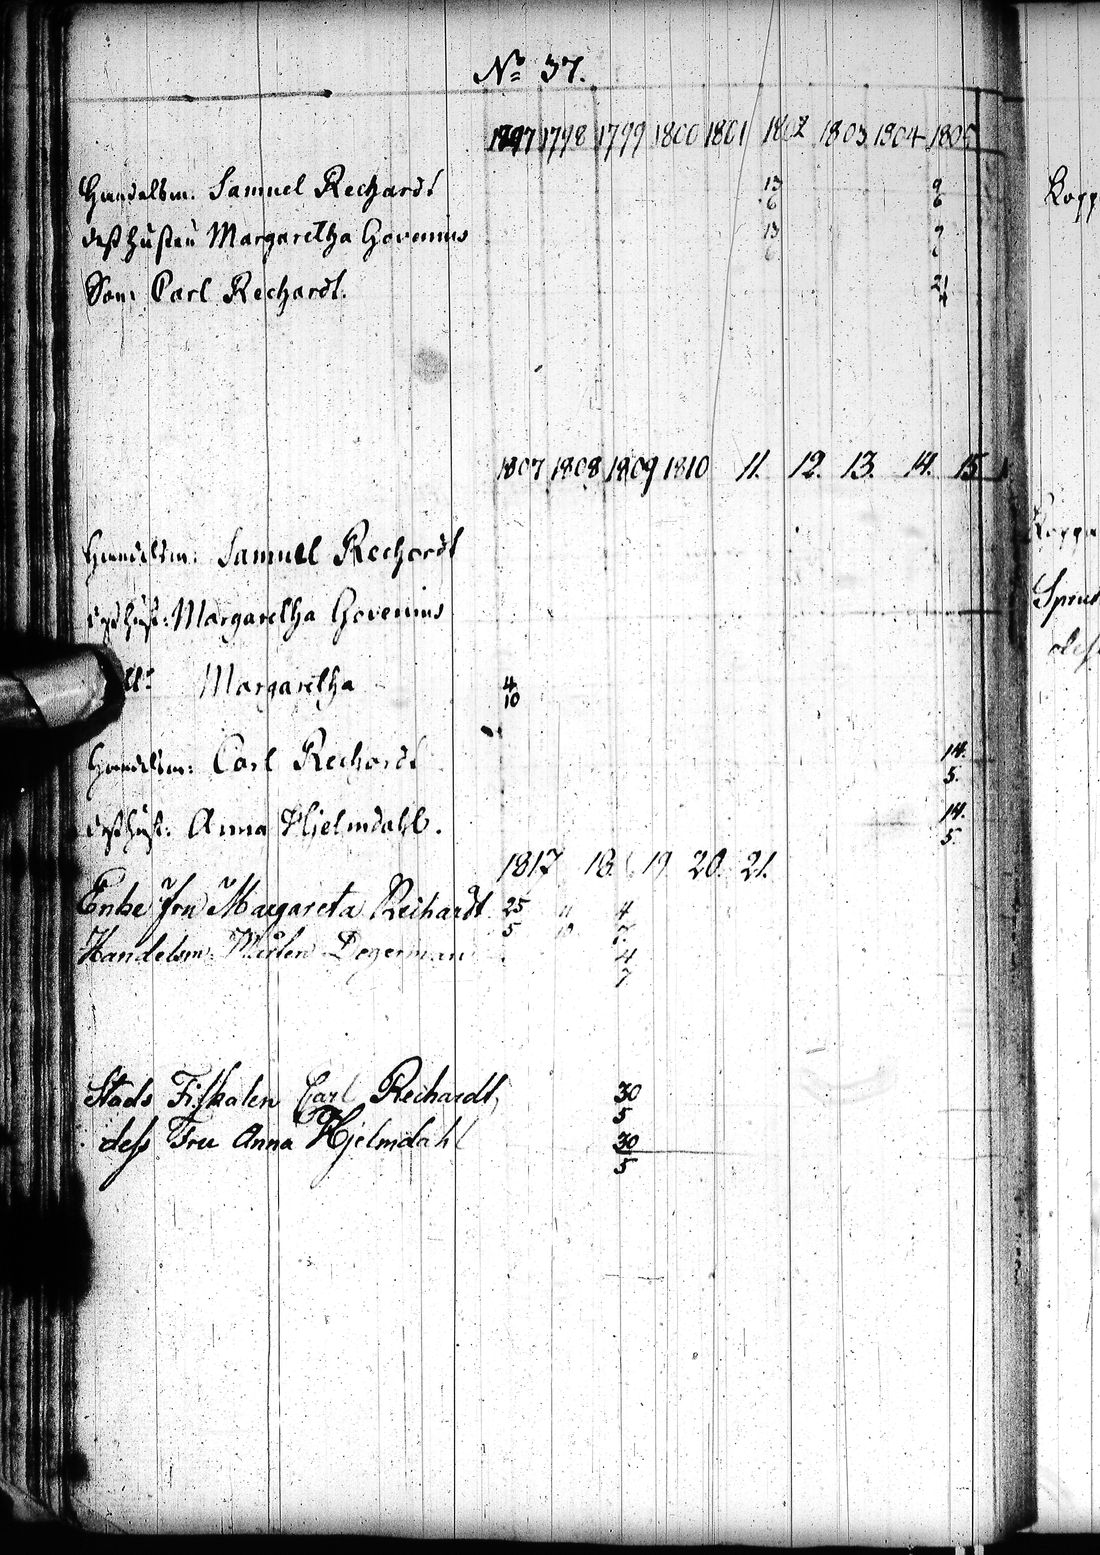 No 37.
1797 1798 1799 1800 1801 1802 1803 1804 1805
Handelsm: Samuel Rechardt 13/6 9/6
dess hustru Margaretha Govenius 13/6
Son: Carl Rechardt. 21/4
1807 1808 1809 1810 11. 12. 13. 14. 15
Handelsm: Samuel Rechardt
dess hust: Margaretha Govenius
Margaretha 4/10
Handelsm: Carl Rechardt 14./5.
dess hust: Anna Hjelmdahl. 14./5.
1817 18. 19 20. 21.
Enke fru Margareta Reichardt 25/5 11/10 4
Handelsm: Degerman 4/7
Stads Fiskalen Carl Reichardt, 30/5
dess Fru Anna Hjelmdahl 30/5